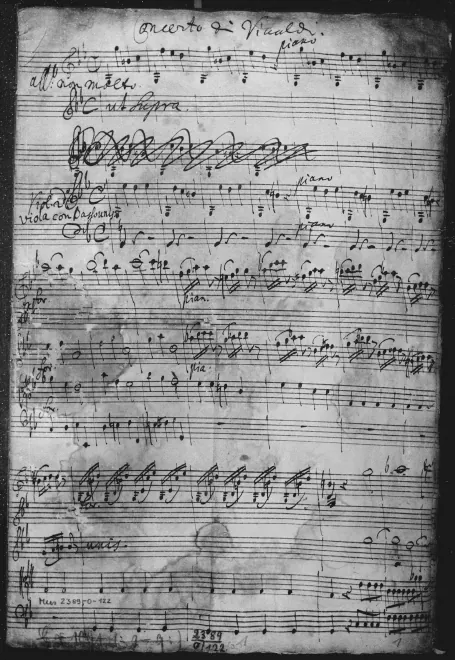 Concerto di Vivaldi.
piano
all: non molto
C ut Supra.
piano
Viola
viola con Bassono
piano
for
pian.
for
pia.
for
unis.
Mus 2389-O-122
2389
O 122
1